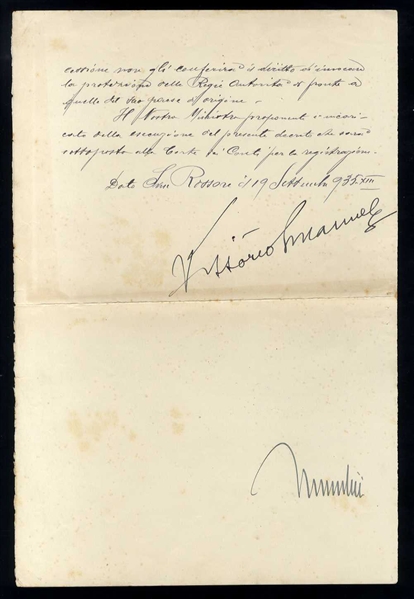 cessione non gli conferirà il diritto di invocare
la protezione delle Regie Autorità di fronte a
quelle del suo paese di origine.
Il Nostro Ministro proponente è incari-
cato della esecuzione del presente decreto che sarà
sottoposto alla Corte dei Conti per la registrazione.
Dato San Rossore il 19 Settembre 935. XIII
Vittorio Emanuele
Mussolini